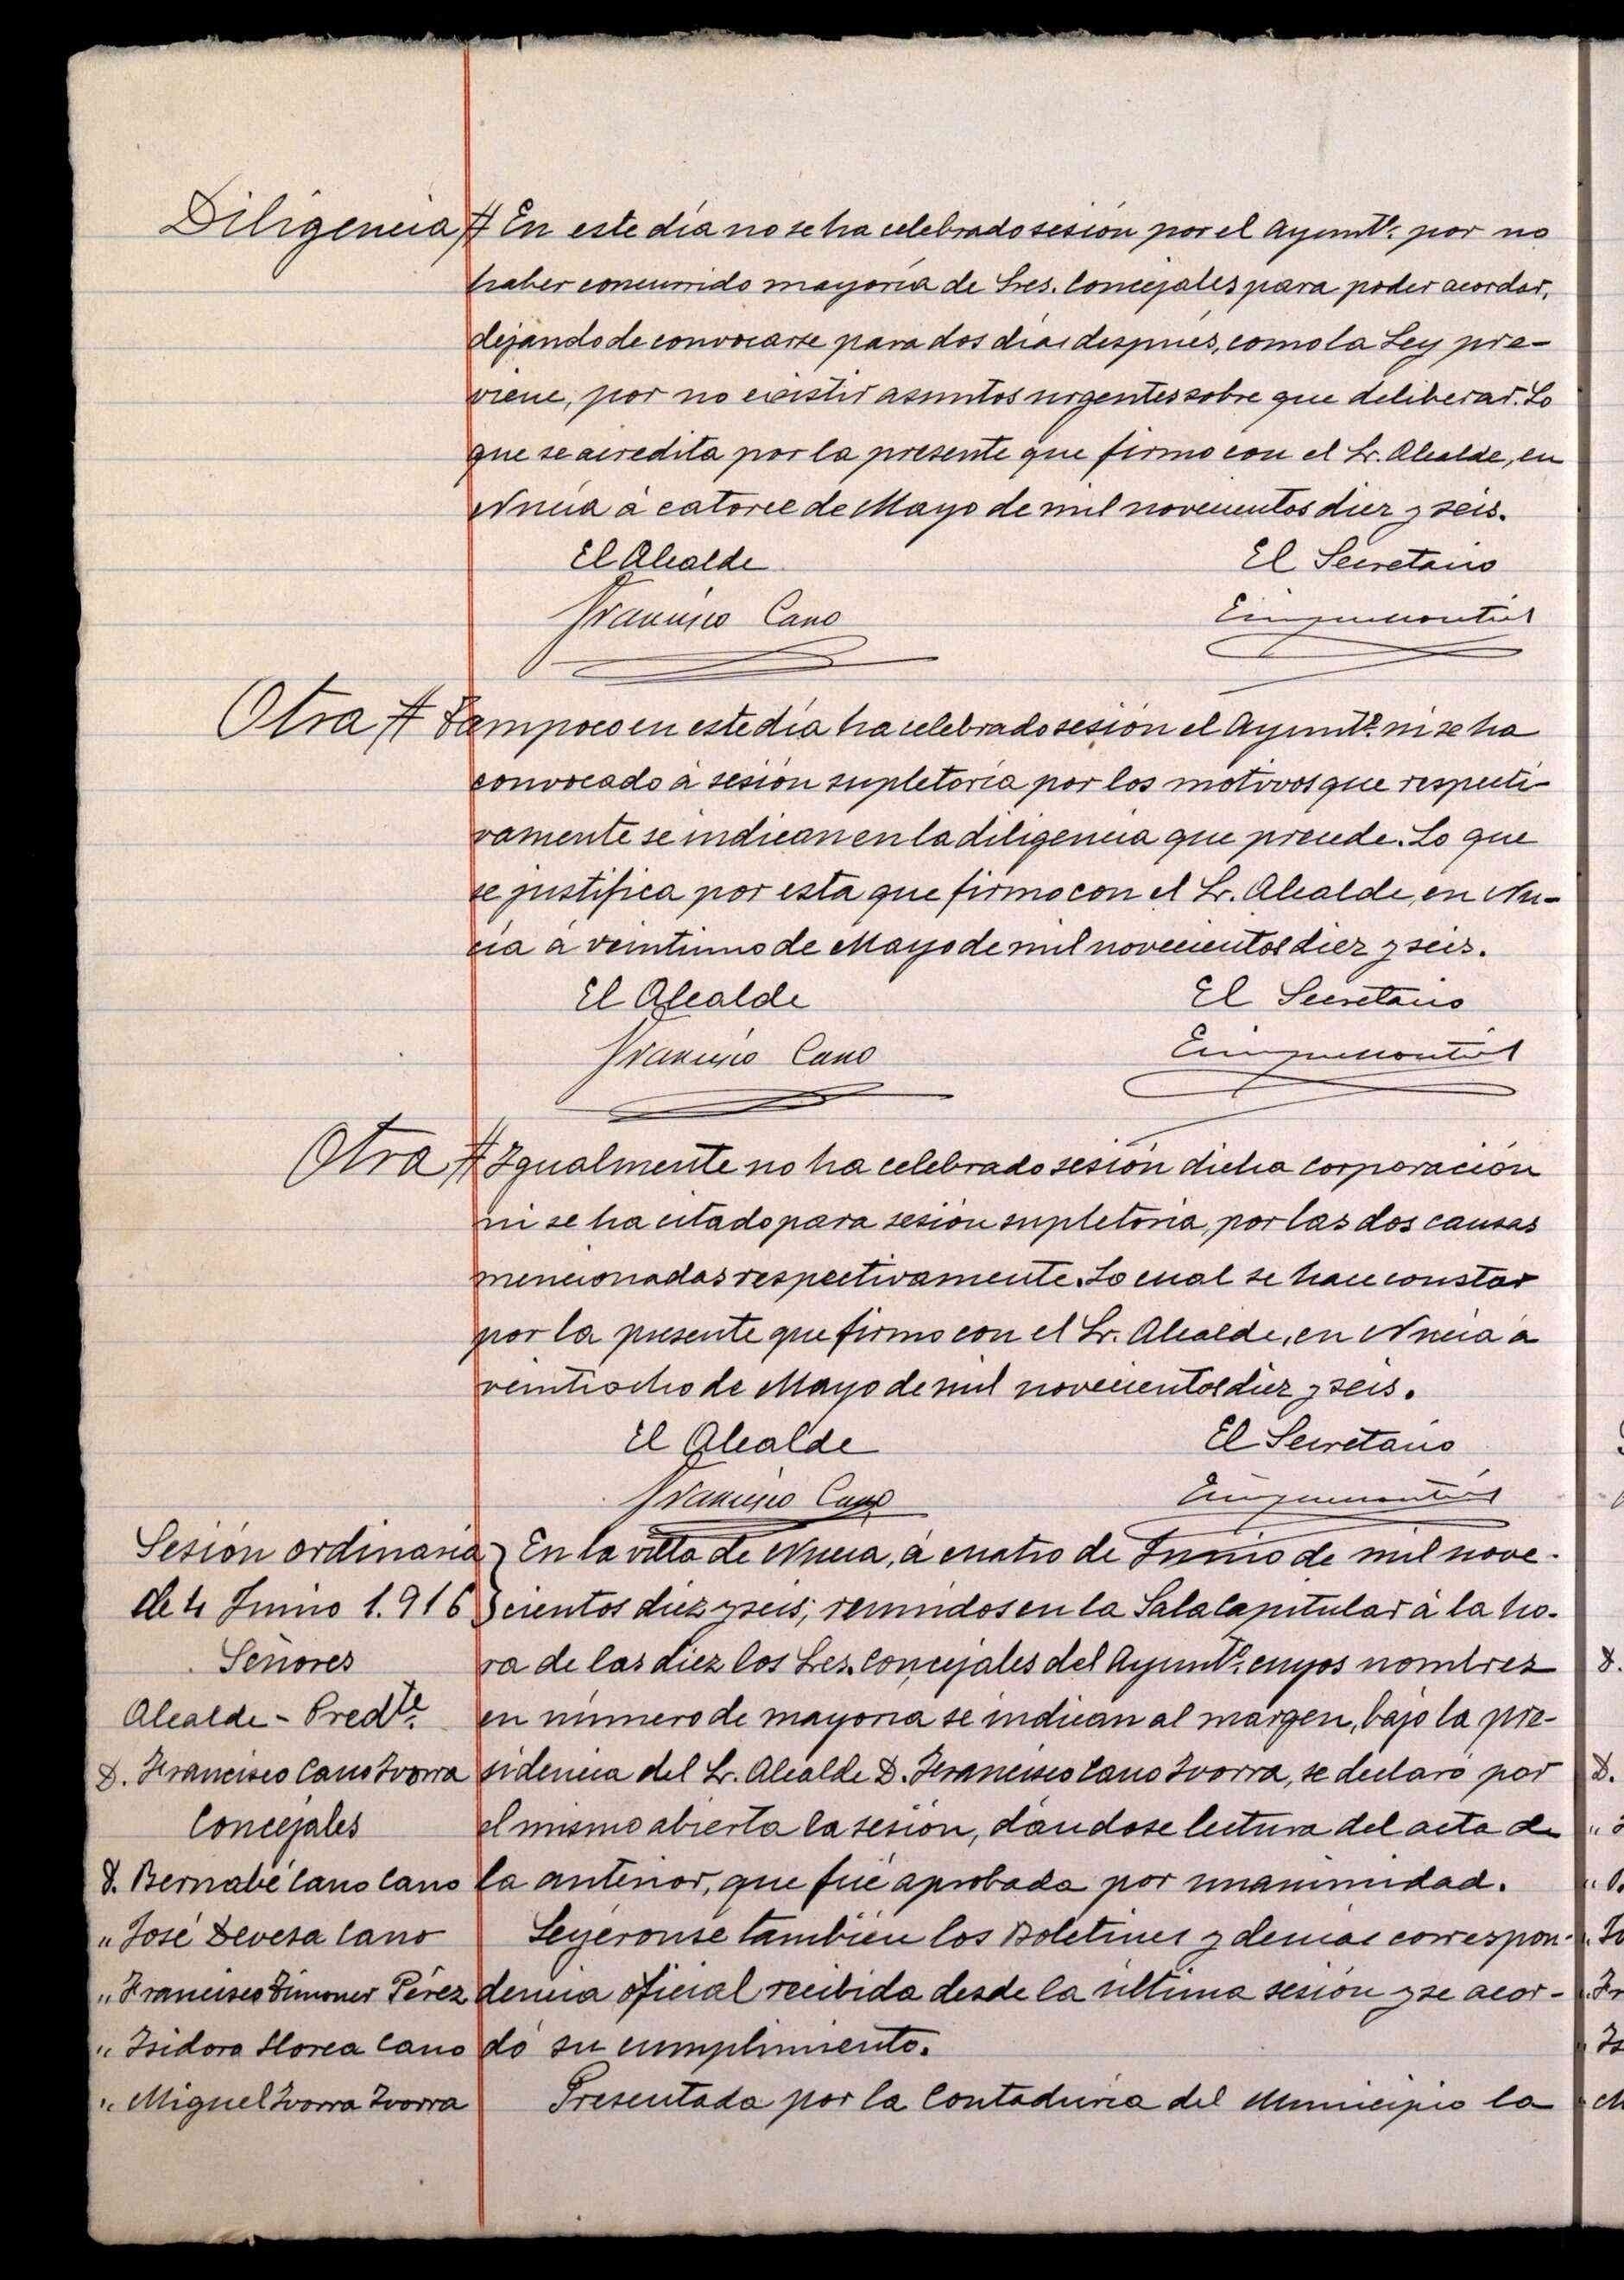 Diligencia # En este día no se ha celebrado sesión por el Ayuntº. por no
haber concurrido mayoría de Sres. Concejales para poder acordar,
dejando de convocarse para dos días después, como la Ley pre-
viene, por no existir asuntos urgentes sobre que deliberar. Lo
que se acredita por la presente que firmo con el Sr. Alcalde, en
Nucía á catorce de Mayo de mil novecientos diez y seis.
El Alcalde El Secretario
Francisco Cano Enrique Montiel
Otra # Tampoco en este día ha celebrado sesión el Ayuntº. ni se ha
convocado á sesión supletoria por los motivos que respecti-
vamente se indican en la diligencia que precede. Lo que
se justifica por esta que firmo con el Sr. Alcalde, en Nu-
cía á veintiuno de Mayo de mil novecientos diez y seis.
El Alcalde El Secretario
Francisco Cano Enrique Montiel
Otra # Igualmente no ha celebrado sesión dicha corporación
ni se ha citado para sesión supletoria, por las dos causas
mencionadas respectivamente. Lo cual se hace constar
por la presente que firmo con el Sr. Alcalde, en Nucía á
veintiocho de Mayo de mil novecientos diez y seis.
El Alcalde El Secretario
Francisco Cano Enrique Montiel
Sesión ordinaria
de 4 Junio 1.916
Señores
Alcalde - Predte.
D. Francisco Cano Ivorra
Concejales
D. Bernabé Cano Cano
" José Devesa Cano
" Francisco Zimoner Pérez
" Isidoro Llorca Cano
" Miguel Ivorra Ivorra
En la villa de Nucía, á cuatro de Junio de mil nove-
cientos diez y seis; reunidos en la Sala Capitular á la ho-
ra de las diez los Sres. Concejales del Ayuntº. cuyos nombres
en número de mayoría se indican al margen, bajo la pre-
sidencia del Sr. Alcalde D. Francisco Cano Ivorra, se declaró por
el mismo abierta la sesión, dándose lectura del acta de
la anterior, que fué aprobada por unanimidad.
Leyéronse también los Boletines y demás correspon-
dencia oficial recibida desde la última sesión y se acor-
dó su cumplimiento.
Presentada por la Contaduría del Municipio la